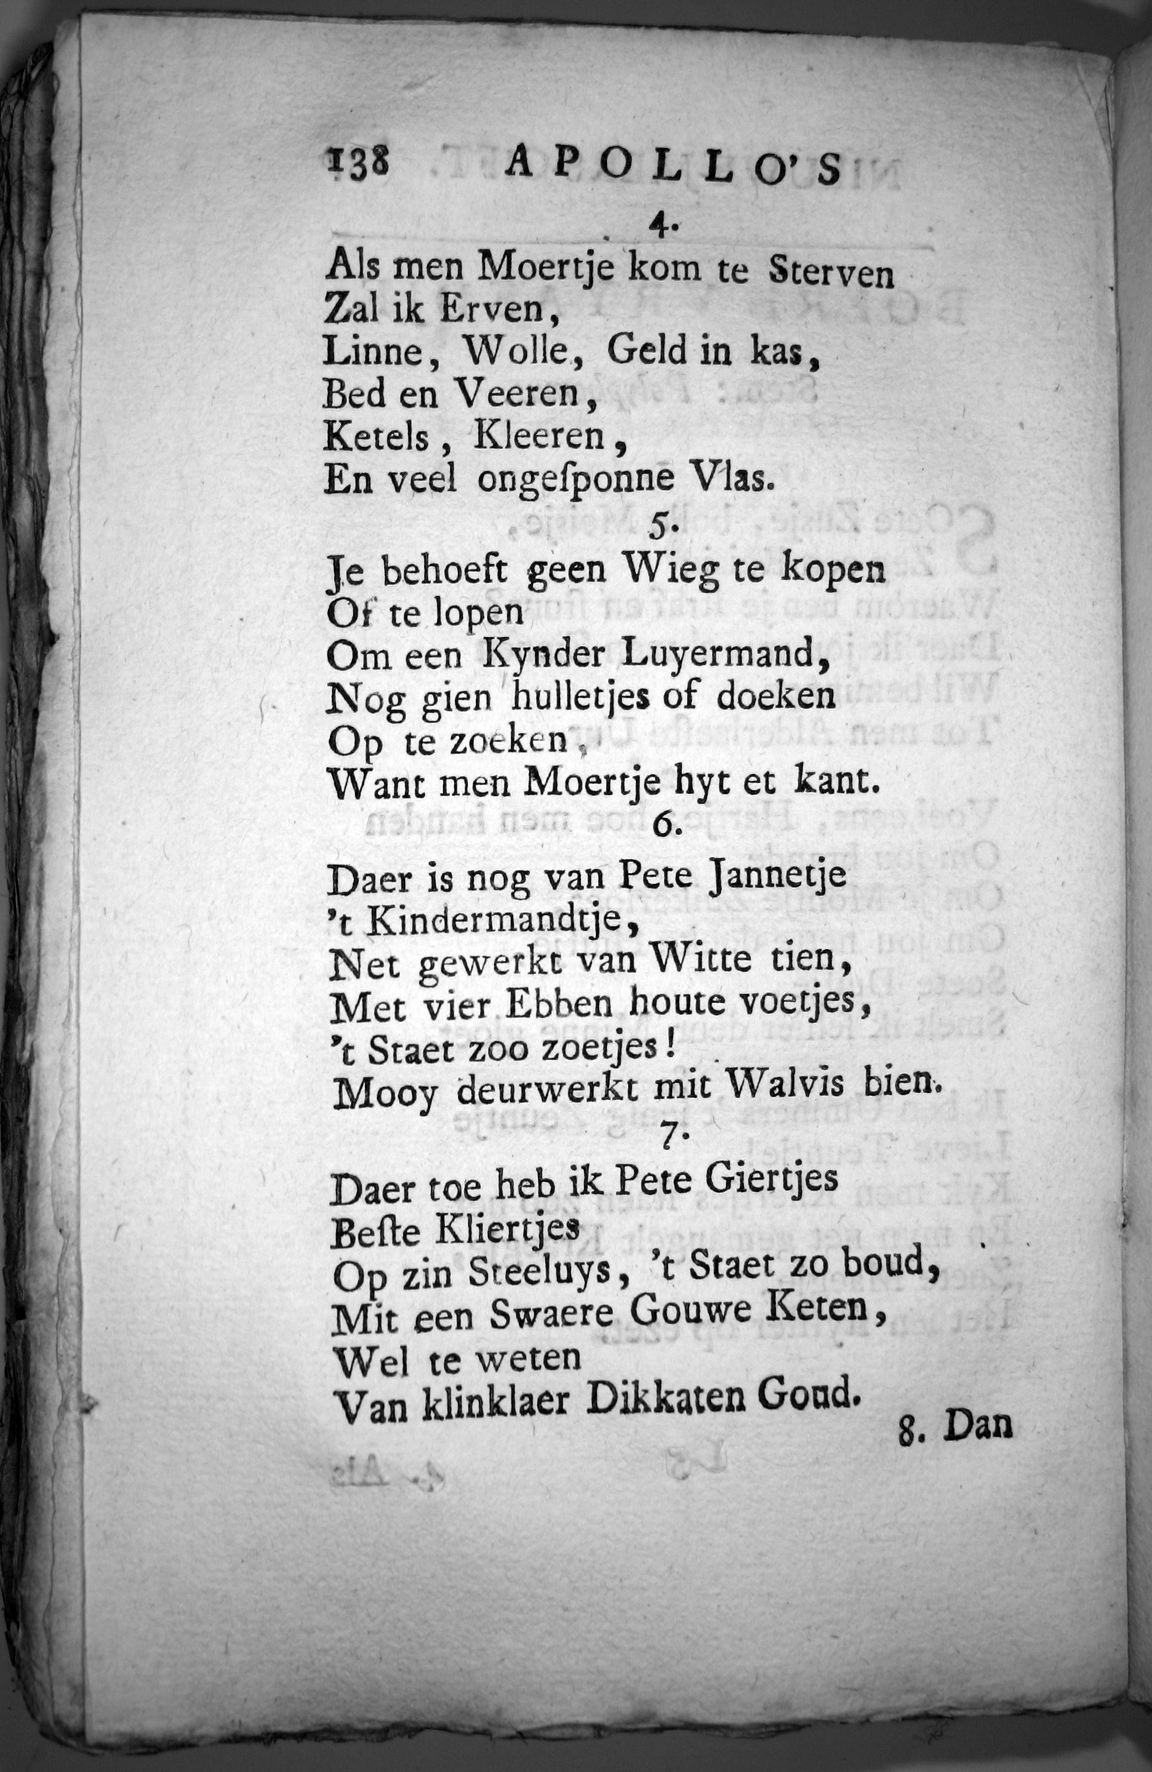 138 APOLLO'S
4.
Als men Moertje kom te Sterven
Zal ik Erven,
Linne, Wolle, Geld in kas,
Bed en Veeren,
Ketels, Kleeren,
En veel ongeſponne Vlas.
5.
Je behoeft geen Wieg te kopen
Of te lopen
Om een Kynder Luyermand,
Nog gien hulletjes of doeken
Op te zoeken,
Want men Moertje hyt et kant.
6.
Daer is nog van Pete Jannetje
't Kindermandtje,
Net gewerkt van Witte tien,
Met vier Ebben houte voetjes,
't Staet zoo zoetjes!
Mooy deurwerkt mit Walvis bien.
7.
Daer toe heb ik Pete Giertjes
Beſte Kliertjes
Op zin Steeluys, 't Staet zo boud,
Mit een Swaere Gouwe Keten,
Wel te weten
Van klinklaer Dikkaten Goud.
8. Dan